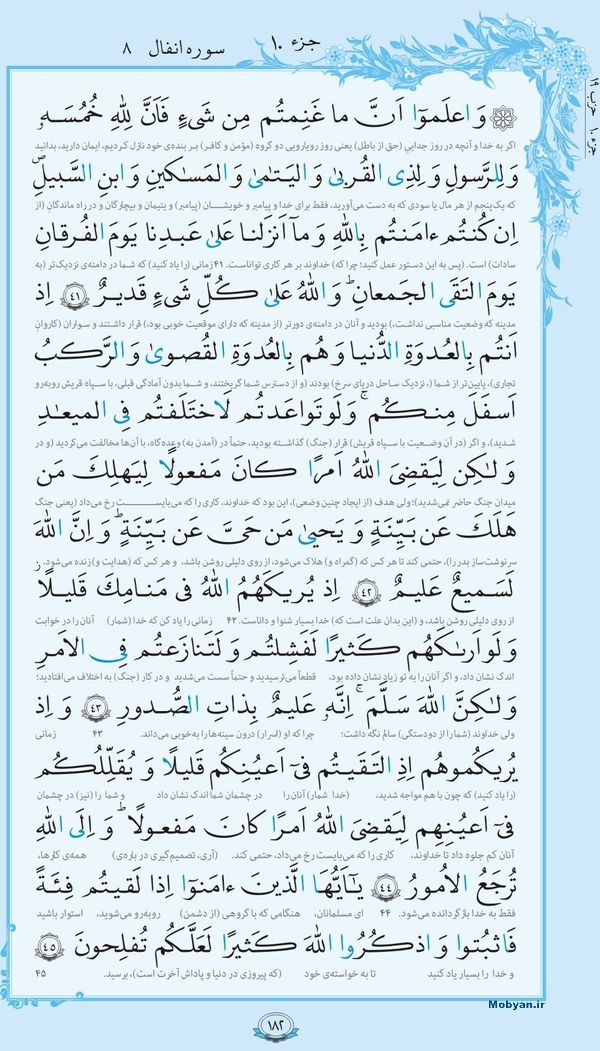 جزء ۱۰
سوره انفال ۸
جزء ۱۰ حزب ۱۹
وَاعلَموا اَنَّ ما غَنِمتُم مِن شَیءٍ فَاَنَّ لِلّٰهِ خُمُسَهٗ
اگر به خدا و آنچه در روز جدایی (حق از باطل) یعنی روز رویارویی دو گروه (مؤمن و کافر) بر بنده‌ی خود نازل کردیم، ایمان دارید، بدانید
وَ لِلرَّسولِ وَ لِذِی القُربیٰ وَ الیَتامیٰ وَ المَسـاکینِ وَ ابنِ السَّبیلِ
که یک‌پنجم از هر مال یا سودی که به دست می‌آورید، فقط برای خدا و پیامبر و خویشـان (پیامبر) و یتیمان و بیچارگان و در راه ماندگان (از
اِن کُنتُم ءامَنتُم بِاللهِ وَ ما اَنزَلنا عَلیٰ عَبدِنا یَومَ الفُرقانِ
سادات) است. (پس به این دستور عمل کنید؛ چرا که) خداوند بر هر کاری تواناست. ۴۱ زمانی (را یاد کنید) که شما در دامنه‌ی نزدیک‌تر (به
یَومَ التَقَی الجَمعانِ وَ اللهُ عَلیٰ کُلِّ شَیءٍ قَدیرٌ ﴿۴۱﴾ اِذ
مدینه که وضعیت مناسبی نداشت،) بودید و آنان در دامنه‌ی دورتر (از مدینه که دارای موقعیت خوبی بود،) قرار داشتند و سواران (کاروان
اَنتُم بِالعُدوَةِ الدُّنیا وَ هُم بِالعُدوَةِ القُصویٰ وَ الرَّکبُ
تجاری)، پایین‌تر از شما (، نزدیک ساحل دریای سرخ) بودند (و از دسترس شما گریختند، و شما بدون آمادگی قبلی، با سپاه قریش روبه‌رو
اَسفَلَ مِنکُم وَ لَو تَواعَدتُم لَاختَلَفتُم فِی المیعادِ
شدید)، و اگر (در آن وضعیت با سپاه قریش) قرار (جنگ) گذاشته بودید، حتماً در (آمدن به) وعده‌گاه، با آن‌ها مخالفت می‌کردید (و در
وَ لٰکِن لِیَقضِیَ اللهُ اَمرًا کانَ مَفعولًا لِیَهلِکَ مَن
میدان جنگ حاضر نمی‌شدید)؛ ولی هدف (از ایجاد چنین وضعی)، این بود که خداوند، کاری را که می‌بایست رخ می‌داد (یعنی جنگ
هَلَکَ عَن بَیِّنَةٍ وَ یَحییٰ مَن حَیَّ عَن بَیِّنَةٍ وَ اِنَّ اللهَ
سرنوشت‌ساز بدر را)، حتمی کند تا هر کس که (گمراه و) هلاک می‌شود، از روی دلیلی روشن باشد، و هر کس که (هدایت و) زنده می‌شود،
لَسَمیعٌ عَلیمٌ ﴿۴۲﴾ اِذ یُریکَهُمُ اللهُ فی مَنامِکَ قَلیلًا
از روی دلیلی روشن باشد، و (این بدان علت است که) خدا بسیار شنوا و داناست. ۴۲ زمانی را یاد کن که خدا (شمار) آنان را در خوابت
وَ لَو اَراکَهُم کَثیرًا لَفَشِلتُم وَ لَتَنازَعتُم فِی الاَمرِ
اندک نشان داد، و اگر آنان را به تو زیاد نشان داده بود، قطعاً می‌ترسیدید و حتماً سست می‌شدید و در کار (جنگ) به اختلاف می‌افتادید؛
وَ لٰکِنَّ اللهَ سَلَّمَ اِنَّهٗ عَلیمٌ بِذاتِ الصُّدورِ ﴿۴۳﴾ وَ اِذ
ولی خداوند (شما را از دودستگی) سالم نگه داشت؛ چرا که او (اسرار) درون سینه‌ها را به‌خوبی می‌داند. ۴۳ زمانی
یُریکُموهُم اِذِ التَقَیتُم فی اَعیُنِکُم قَلیلًا وَ یُقَلِّلُکُم
(را یاد کنید) که چون با هم مواجه شدید، (خدا شمار) آنان را در چشمان شما اندک نشان داد و شما را (نیز) در چشمان
فی اَعیُنِهِم لِیَقضِیَ اللهُ اَمرًا کانَ مَفعولًا وَ اِلَی اللهِ
آنان کم جلوه داد تا خداوند، کاری را که می‌بایست رخ می‌داد، حتمی کند. (آری، تصمیم‌گیری در باره‌ی) همه‌ی کارها،
تُرجَعُ الاُمورُ ﴿۴۴﴾ یاَیُّهَا الَّذینَ ءامَنوا اِذا لَقیتُم فِئَةً
فقط به خدا بازگردانده می‌شود. ۴۴ ای مسلمانان، هنگامی که با گروهی (از دشمن) روبه‌رو می‌شوید، استوار باشید
فَاثبُتوا وَ اذکُرُوا اللهَ کَثیرًا لَعَلَّکُم تُفلِحونَ ﴿۴۵﴾
و خدا را بسیار یاد کنید تا به خواسته‌ی خود (که پیروزی در دنیا و پاداش آخرت است)، برسید. ۴۵
۱۸۲
Mobyan.ir